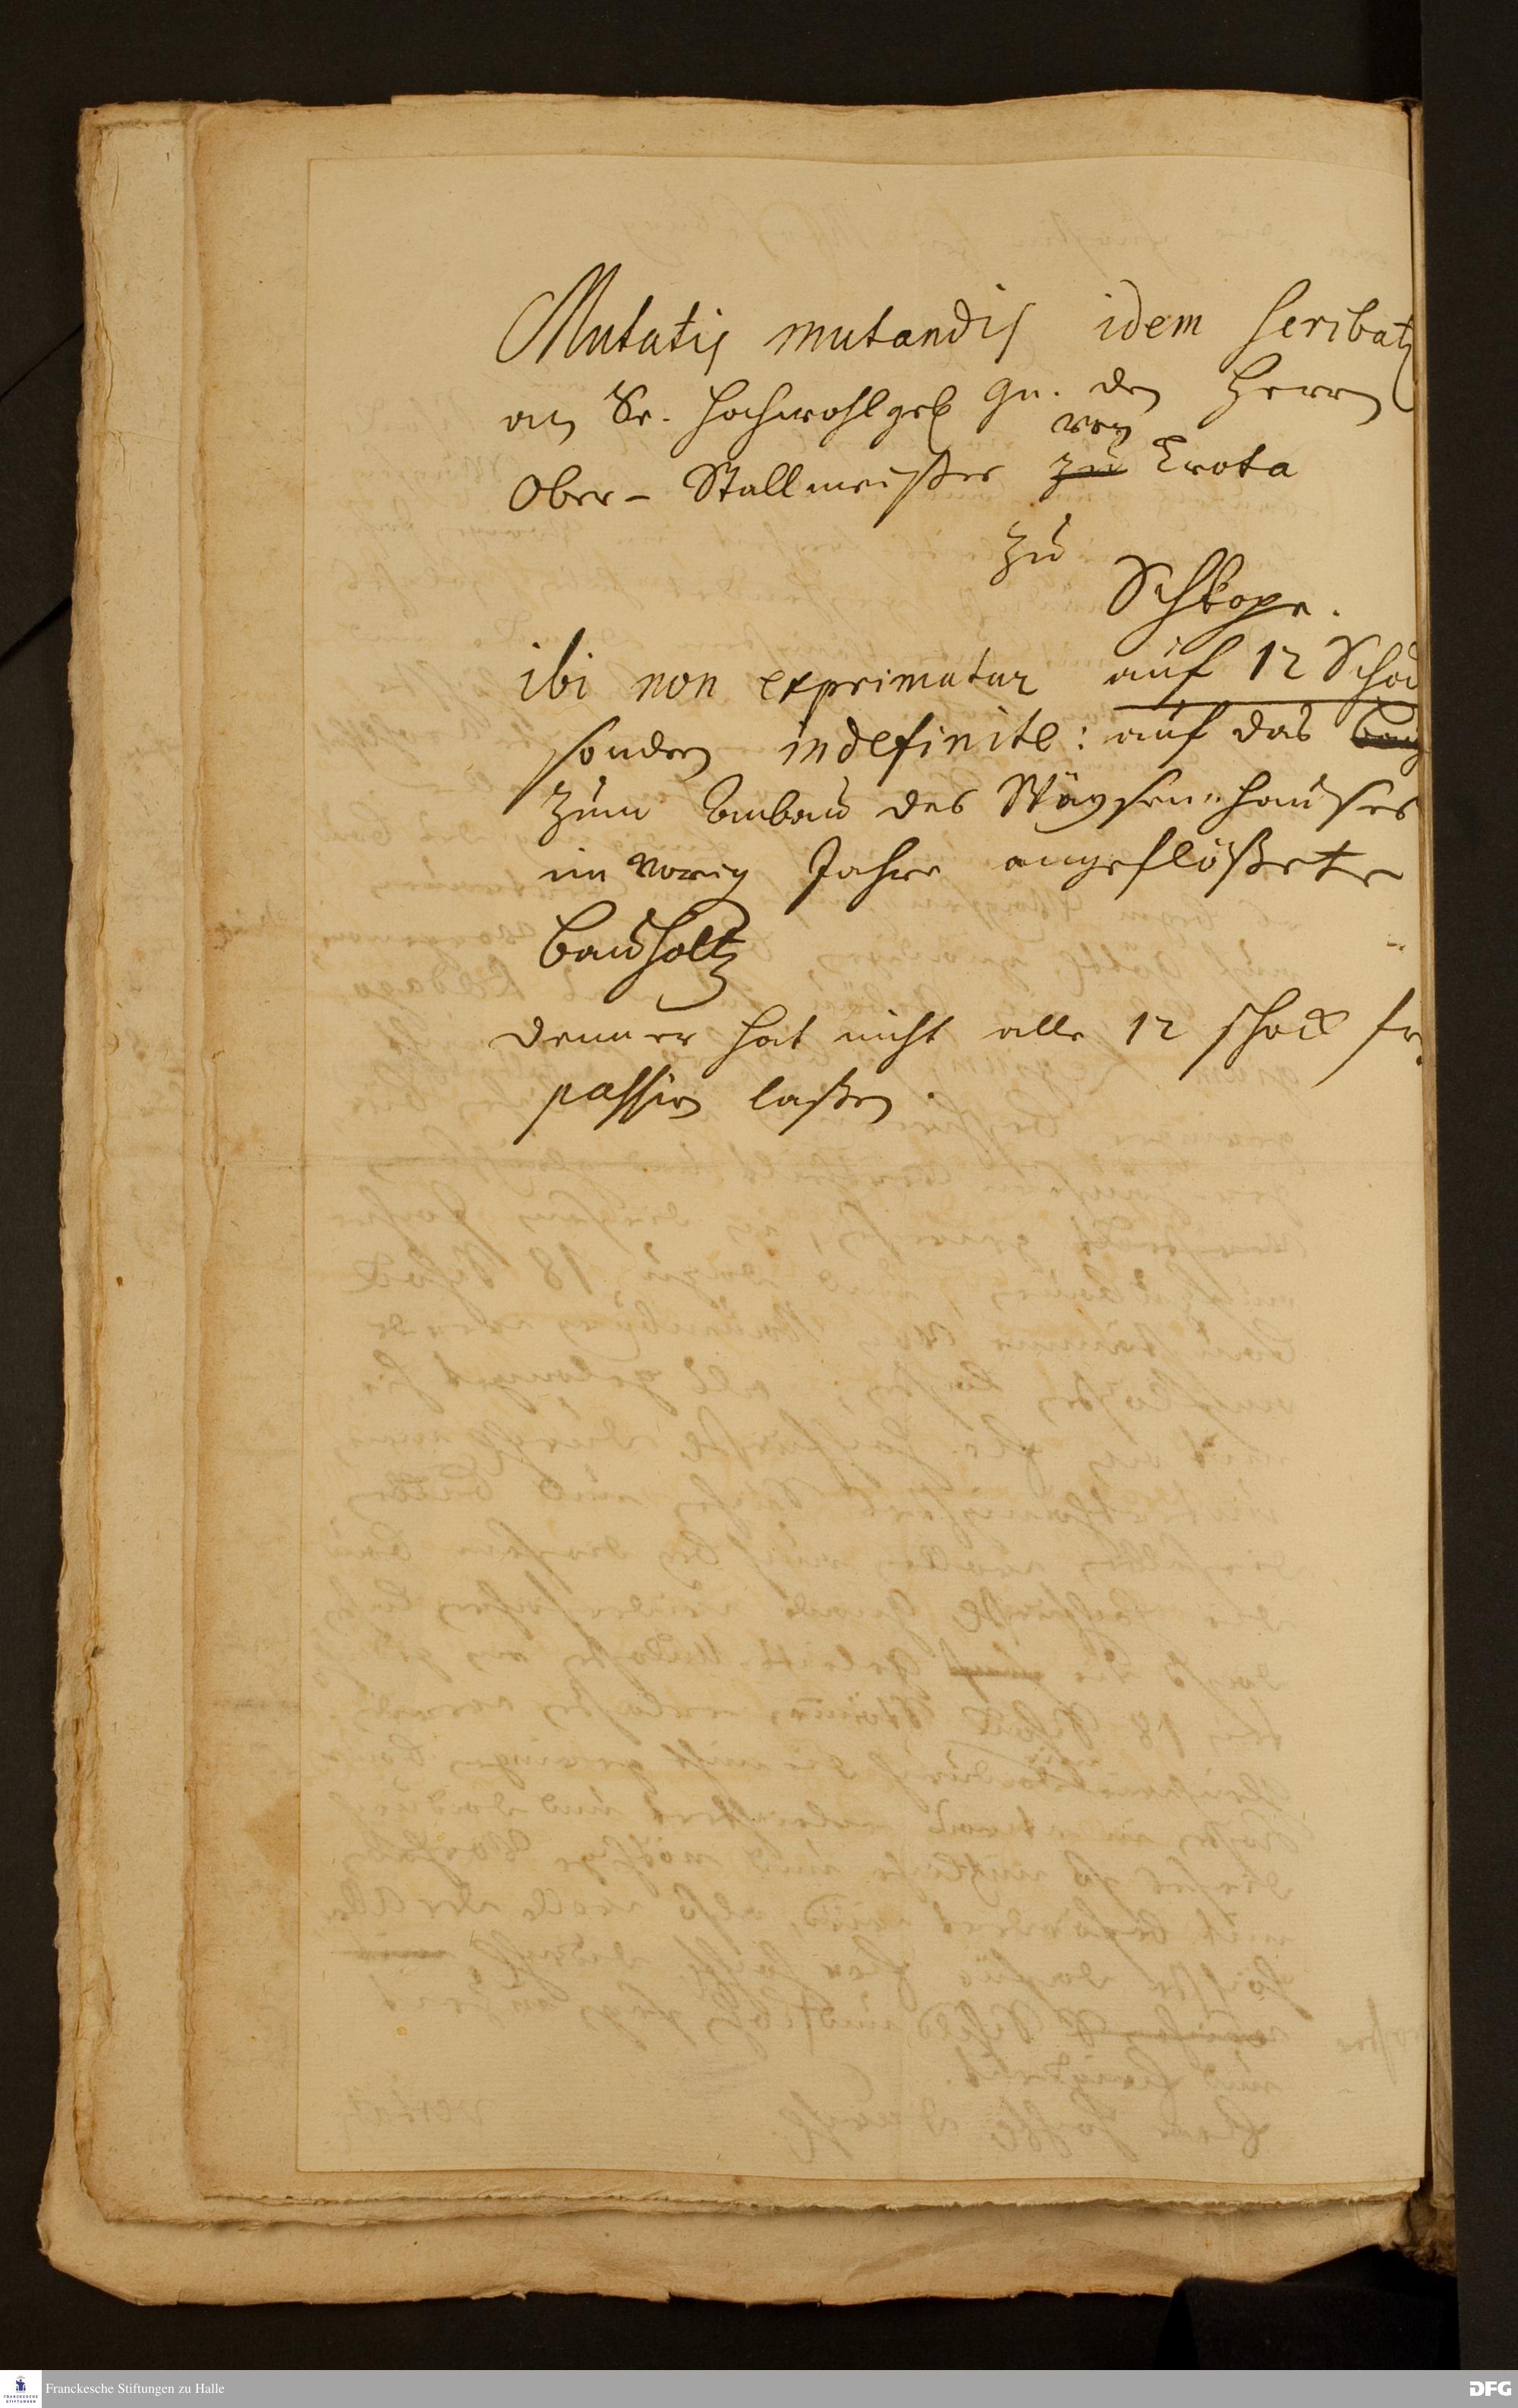 Mutatis mutandis idem scribat
an Sr. Hochwohlgeb Gn. den Herrn
von
Ober-Stallmeister zu Trota
zu
Schkopa.
ibi non exprimatur auf 12 Schock
sondern indefinite: auf das Bau
zum Anbau des Wäysen-hauses
im vorig Jahre angeflößete
Bauholtz
denn er hat nicht alle 12 schock
passiren laßen.
Franckesche Stiftungen zu Halle
DFG